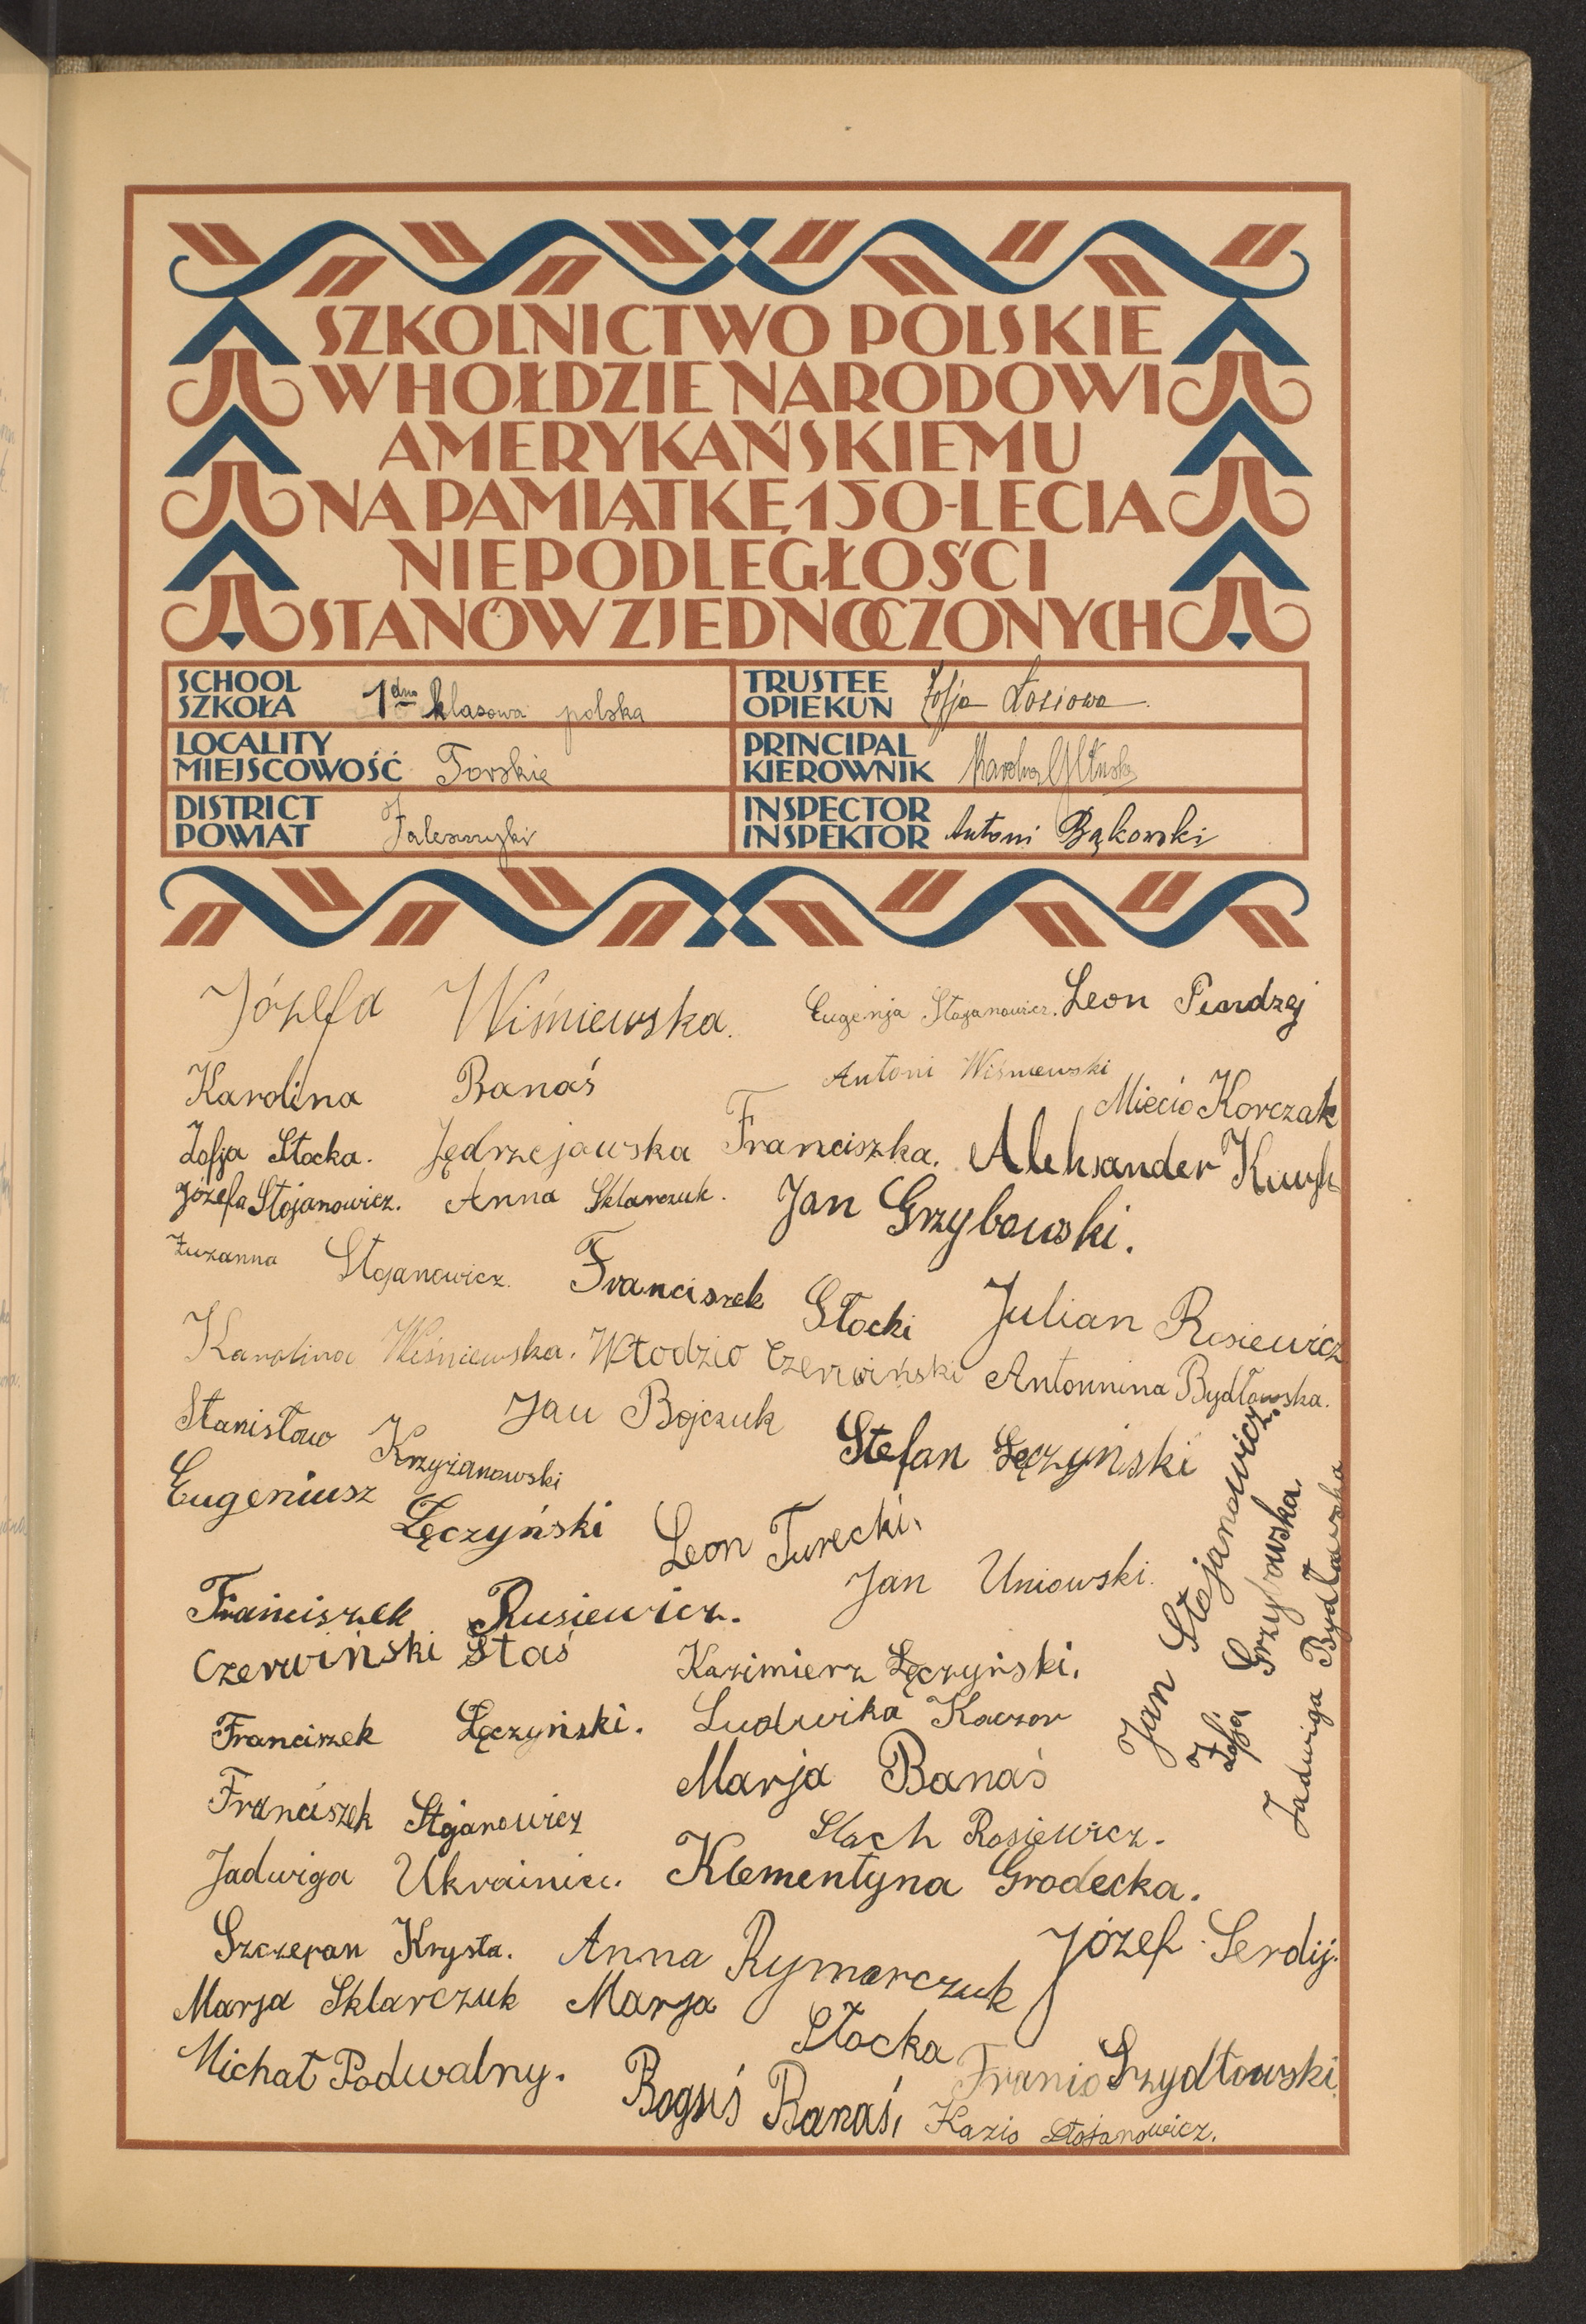 SZKOLNICTWO POLSKIE
W HOŁDZIE NARODOWI
AMERYKAŃSKIEMU
NA PAMIĄTKĘ 150-LECIA
NIEPODLEGŁOŚCI
STANÓW ZJEDNOCZONYCH
SCHOOL
SZKOŁA
1dno klasowa polska
TRUSTEE
OPIEKUN
Zofja Łosiowa
LOCALITY
MIEJSCOWOŚĆ
Torskie
PRINCIPAL
KIEROWNIK
DISTRICT
POWIAT
Zaleszczyki
INSPECTOR
INSPEKTOR
Antoni Bąkowski
Józefa Wiśniewska.
Eugenja Stojanowicz.
Leon
Karolina Banaś
Antoni Wiśniewski
Miecio Korczak
Zofja Słocka.
Jędrzejawska Franciszka.
Aleksander
Józefa Stojanowicz.
Anna Sklarczuk.
Jan Grzybowski.
Zuzanna Stojanowicz.
Franciszek Słocki
Julian Rosiewicz
Karolina Wiśniewska.
Włodzio Czerwiński
Antonnina Bydłowska.
Stanisław Krzyżanowski
Jan Bojczuk
Stefan Łęczyński
Eugeniusz Łęczyński
Leon Turecki.
Jan Uniowski.
Franciszek Rusiewicz.
Czerwiński Staś
Kazimierz Łęczyński.
Franciszek Łęczyński.
Ludwika Kaczor
Marja Banaś
Franciszek Stojanowicz
Stach Rosiewicz.
Jadwiga Ukrainiec.
Klementyna Grodecka.
Jan Stojanowicz.
Zofja Grzybowska.
Jadwiga Bydłowska
Szczepan Krysta.
Anna Rymarczuk
Józef Serdij.
Marja Sklarczuk
Marja Słocka
Michał Podwalny.
Boguś Banaś.
Franio Szydłowski.
Kazio Stojanowicz.